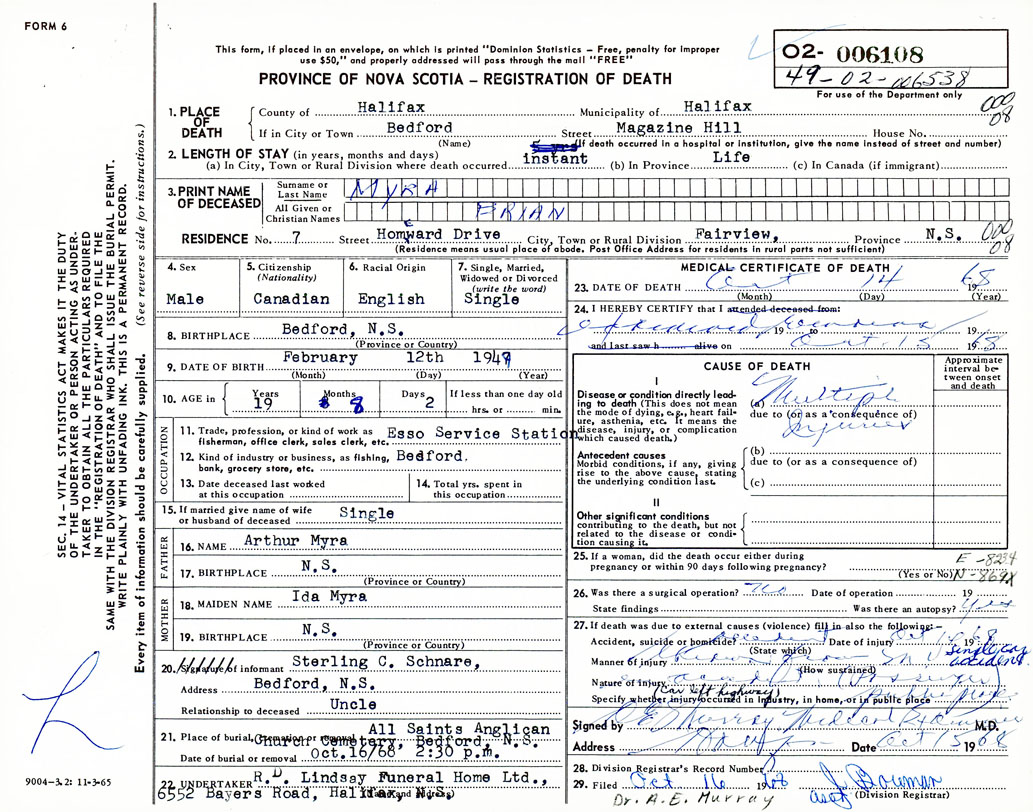 FORM 6
This form, if placed in an envelope, on which is printed "Dominion Statistics — Free, penalty for improper
use $50," and properly addressed will pass through the mail "FREE"
PROVINCE OF NOVA SCOTIA — REGISTRATION OF DEATH
O2- 006108
49-02-006538
For use of the Department only
000
08
1. PLACE OF DEATH
County of Halifax Municipality of Halifax
If in City or Town Bedford Street Magazine Hill House No.
(Name) (If death occurred in a hospital or institution, give the name instead of street and number)
2. LENGTH OF STAY (in years, months and days)
(a) In City, Town or Rural Division where death occurred instant (b) In Province Life (c) In Canada (if immigrant)
3. PRINT NAME OF DECEASED
Surname or Last Name MYRA
All Given or Christian Names BRIAN
RESIDENCE No. 7 Street Homeward Drive City, Town or Rural Division Fairview, Province N.S.
000
08
(Residence means usual place of abode. Post Office Address for residents in rural parts not sufficient)
4. Sex
Male
5. Citizenship
(Nationality)
Canadian
6. Racial Origin
English
7. Single, Married,
Widowed or Divorced
(write the word)
Single
8. BIRTHPLACE Bedford, N.S.
(Province or Country)
9. DATE OF BIRTH February 12th 1949
(Month) (Day) (Year)
10. AGE in Years 19 Months 8 Days 2 If less than one day old
hrs. or min.
OCCUPATION
11. Trade, profession, or kind of work as Esso Service Station
fisherman, office clerk, sales clerk, etc.
12. Kind of industry or business, as fishing, Bedford.
bank, grocery store, etc.
13. Date deceased last worked
at this occupation
14. Total yrs. spent in
this occupation
15. If married give name of wife
or husband of deceased Single
FATHER
16. NAME Arthur Myra
17. BIRTHPLACE N.S.
(Province or Country)
MOTHER
18. MAIDEN NAME Ida Myra
19. BIRTHPLACE N.S.
(Province or Country)
20. Signature of informant Sterling C. Schnare,
Address Bedford, N.S.
Relationship to deceased Uncle
21. Place of burial, cremation or removal All Saints Anglican
Church Cemetery, Bedford, N.S.
Date of burial or removal Oct.16/68 2:30 p.m.
22. UNDERTAKER R.D. Lindsay Funeral Home Ltd.,
6552 Bayers Road, Halifax, N.S.
(Name and Address)
MEDICAL CERTIFICATE OF DEATH
23. DATE OF DEATH Oct 14 1968
(Month) (Day) (Year)
24. I HEREBY CERTIFY that I attended deceased from:
19 to 19
and last saw h alive on Oct. 15 1968
CAUSE OF DEATH
Approximate
interval be-
tween onset
and death
I
Disease or condition directly lead-
ing to death (This does not mean
the mode of dying, e.g., heart fail-
ure, asthenia, etc. It means the
disease, injury, or complication
which caused death.)
(a) Multiple
due to (or as a consequence of)
Injuries
Antecedent causes
Morbid conditions, if any, giving
rise to the above cause, stating
the underlying condition last.
(b)
due to (or as a consequence of)
(c)
II
Other significant conditions
contributing to the death, but not
related to the disease or condi-
tion causing it.
25. If a woman, did the death occur either during
pregnancy or within 90 days following pregnancy?
(Yes or No)
26. Was there a surgical operation? No Date of operation 19
State findings Was there an autopsy? Yes
27. If death was due to external causes (violence) fill in also the following:—
Accident, suicide or homicide? Accident Date of injury Oct 14 1968
(State which)
single car
accident
Manner of injury
(How sustained)
Nature of injury (Passenger)
(Car left highway)
Specify whether injury occurred in industry, in home, or in public place
Signed by M.D.
Address Date Oct 15 1968
28. Division Registrar's Record Number
29. Filed Oct 16 1968 J. Bowman
(Division Registrar)
Dr. A.E. Murray
SEC. 14 — VITAL STATISTICS ACT MAKES IT THE DUTY
OF THE UNDERTAKER OR PERSON ACTING AS UNDER-
TAKER TO OBTAIN ALL THE PARTICULARS REQUIRED
IN THE "REGISTRATION OF DEATH" AND TO FILE THE
SAME WITH THE DIVISION REGISTRAR WHO SHALL ISSUE THE BURIAL PERMIT.
WRITE PLAINLY WITH UNFADING INK. THIS IS A PERMANENT RECORD.
Every item of information should be carefully supplied. (See reverse side for instructions.)
9004-3.2: 11-3-65